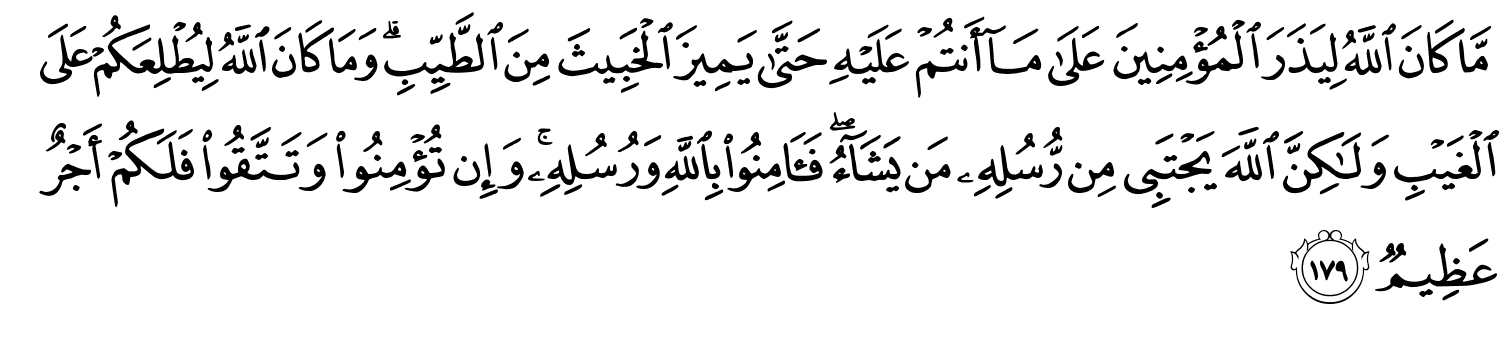 مَّا كَانَ ٱللَّهُ لِيَذَرَ ٱلْمُؤْمِنِينَ عَلَىٰ مَآ أَنتُمْ عَلَيْهِ حَتَّىٰ يَمِيزَ ٱلْخَبِيثَ مِنَ ٱلطَّيِّبِ ۗ وَمَا كَانَ ٱللَّهُ لِيُطْلِعَكُمْ عَلَى
ٱلْغَيْبِ وَلَـٰكِنَّ ٱللَّهَ يَجْتَبِى مِن رُّسُلِهِۦ مَن يَشَآءُ ۖ فَـَٔامِنُوا۟ بِٱللَّهِ وَرُسُلِهِۦ ۚ وَإِن تُؤْمِنُوا۟ وَتَتَّقُوا۟ فَلَكُمْ أَجْرٌ
عَظِيمٌ ١٧٩